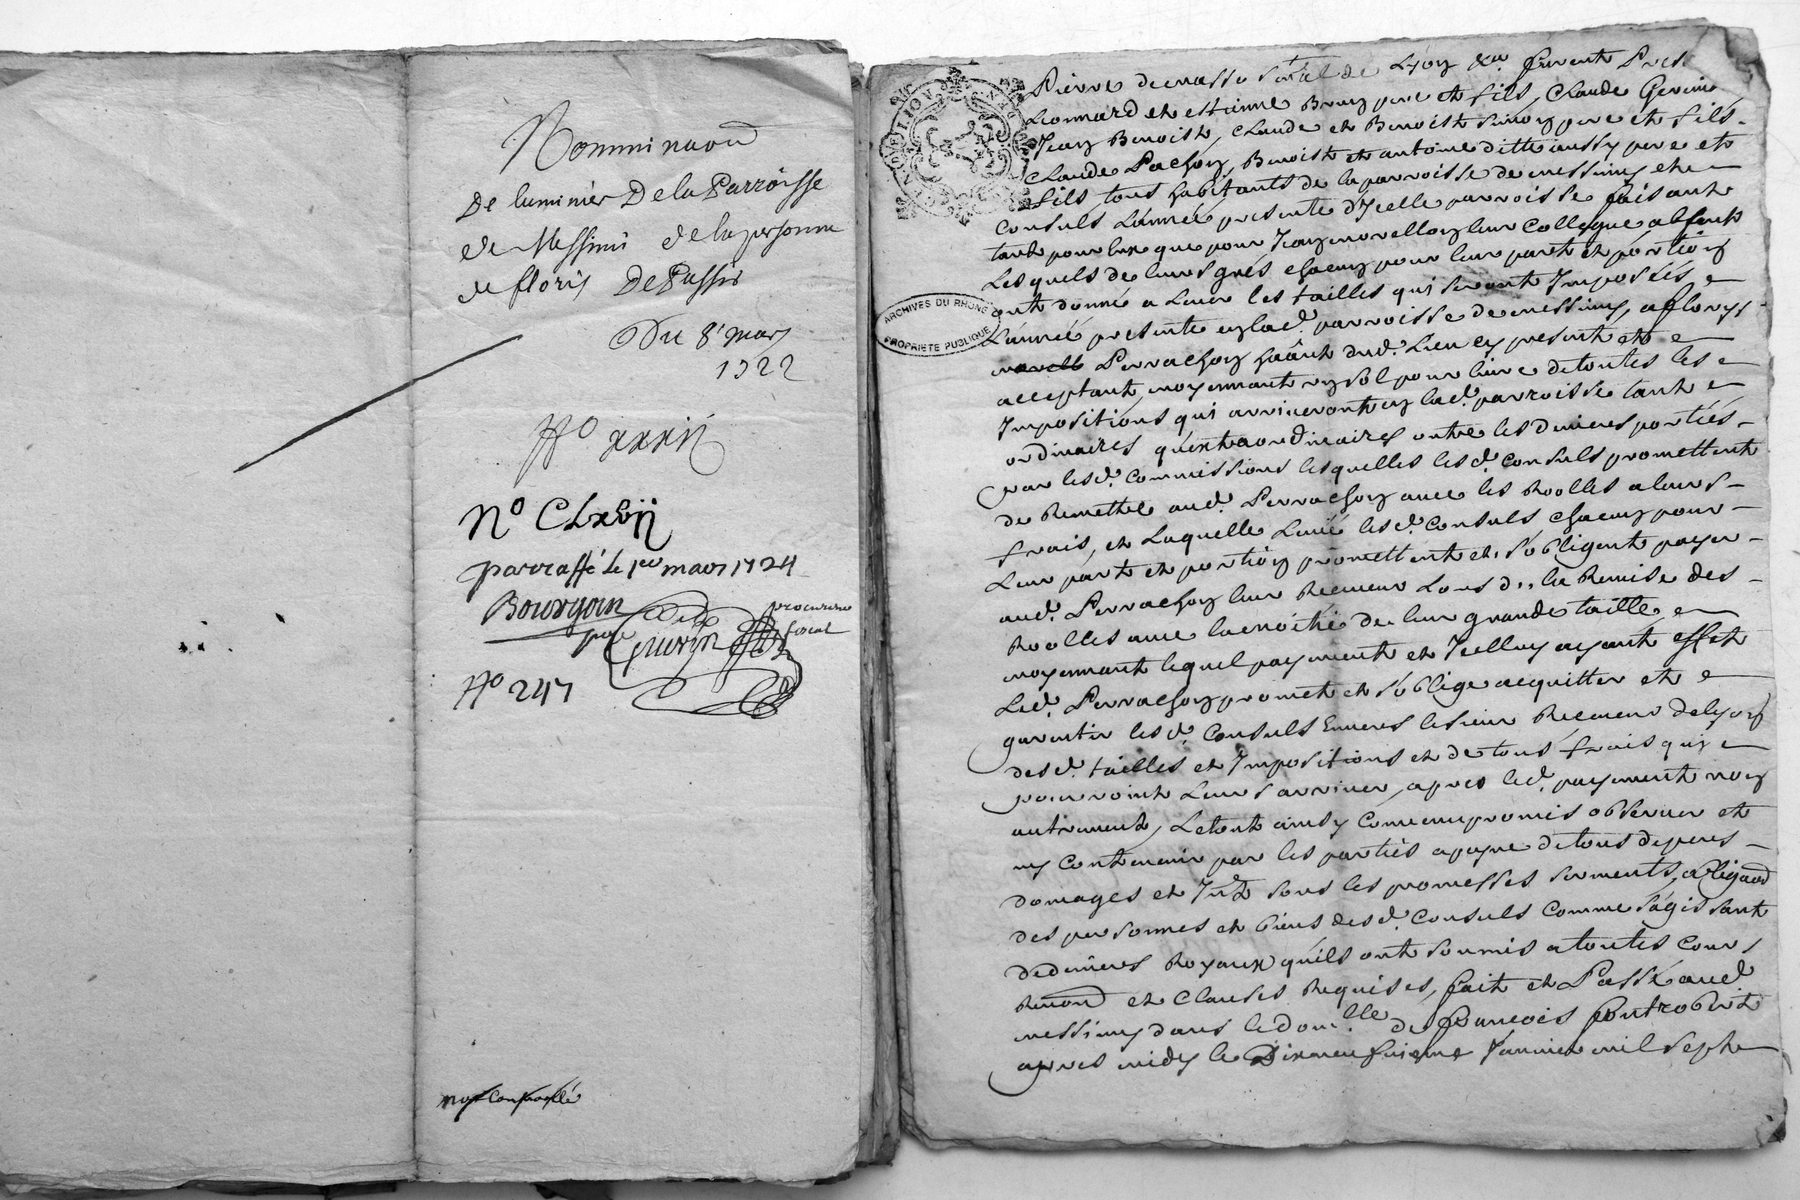 Nominaõn
De luminier De la Parroisse
de Messimi de la personne
de floris De Passis
Du 8e mars
1722
No xxxii
No CLxvii
parraffé le 1er mars 1724
Bourgoin
procureur
fiscal
par
Guerin
No 247
non controollé
GENERAL DE LYON
ARCHIVES DU RHÔNE
PROPRIÉTÉ PUBLIQUE
Pierre de Lyon &a furent
Leonnard et estienne Brun pere et fils, Claude
Jean Benoist, Claude et Benoist Simon pere et fils
Claude Pachon, Benoist et antoine ditte aussy pere et
fils tous habitants de la parroisse de messimy et
Consuls L'année presente d'Icelle parroisse faisants
tant pour Eux que pour Jean novellon leur Collegue absent
Lesquels de leurs grés chacun pour leur part et portion
ont donné a Lever les tailles qui seront Imposées
L'année presente en lad. parroisse de messimy, a florys
Perrachon hãnt dud. Lieu cy present et
acceptant, moyennant un sol pour livre de toutes les
Impositions qui arriveront en lad. parroisse tant
ordinaires qu'extraordinaires outre les deniers portées
par lesd. Commissions lesquelles lesd. Consuls promettent
de Remettre aud. Perrachon avec les Roolles a leurs
frais, et Laquelle Levée lesd. Consuls chacun pour
Leur part et portion promettent et s'obligent payer
aud. Perrachon leur Receveur Lors de la Remise des
Roolles avec la moitié de leur grande taille,
moyennant lequel payement et Icelluy ayant effet
Led. Perrachon promet et s'oblige acquitter et
garentir lesd. Consuls Envers le sieur Receveur de Lyon
desd. tailles et Impositions et de tous frais qui
pourroint Leurs arriver, apres led. payement non
autrement, Le tout ainsy Convenu promis observer et
ny Contrevenir par les parties a payne de tous depens
domages et Intz sous les promesses serments, obligaõn
des personnes et biens desd. Consuls Comme s'agissant
de deniers Royaux qu'ils ont soumis a toutes Cours
Renonõn et Clauses Requises, fait et Passé aud.
messimy dans le domlle de françois Pontrobert
apres midy le Dixneufvieme Janvier mil sept